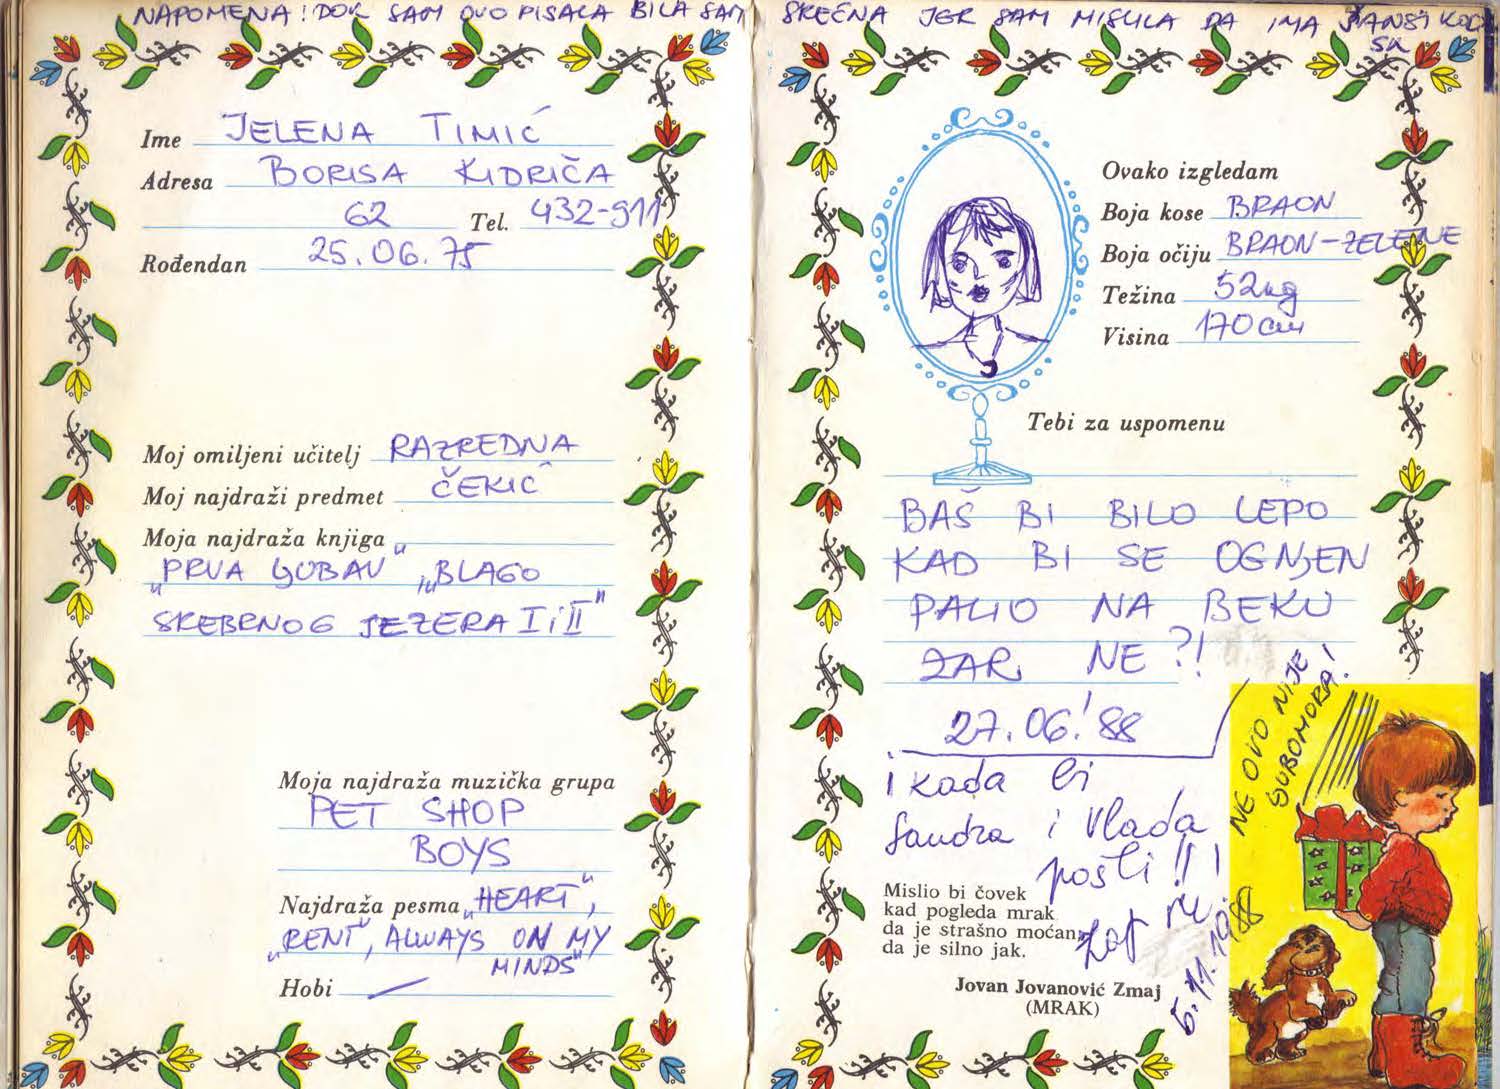 NAPOMENA! DOK SAM OVO PISALA BILA SAM SREĆNA JER SAM MISLILA DA IMA ŠANSI KOD
Ime JELENA TIMIĆ
Adresa BORISA KIDRIČA
62 Tel. 432-911
Rođendan 25.06.75
Moj omiljeni učitelj RAZREDNA
Moj najdraži predmet ČEKIĆ
Moja najdraža knjiga
"PRVA LJUBAV" "BLAGO
SREBRNOG JEZERA I i II"
Moja najdraža muzička grupa
PET SHOP
BOYS
Najdraža pesma "HEART",
"RENT", ALWAYS ON MY
MINDS"
Hobi —
Ovako izgledam
Boja kose BRAON
Boja očiju BRAON-ZELENE
Težina 52kg
Visina 170cm
Tebi za uspomenu
BAŠ BI BILO LEPO
KAD BI SE OGNJEN
PALIO NA BEKU
ZAR NE?!
27.06.'88
i kada bi
Sandra i Vlada
pošli!!!
Zar ne
5.11.1988
NE OVO NIJE
LJUBOMORA!
Mislio bi čovek
kad pogleda mrak
da je strašno moćan,
da je silno jak.
Jovan Jovanović Zmaj
(MRAK)